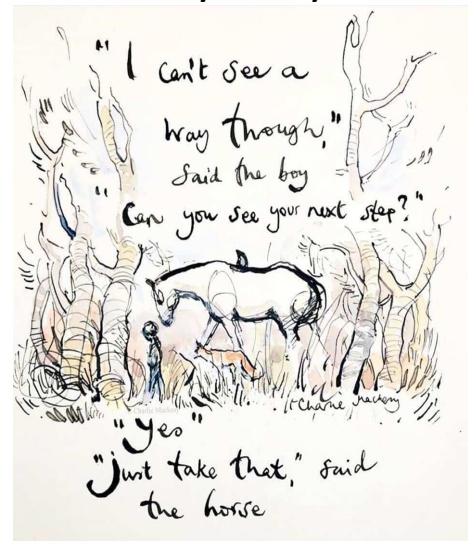 "I can't see a
way though,"
said the boy
"Can you see your next step?"
Charlie Mackesy
Charlie Mackesy
"Yes"
"just take that," said
the horse